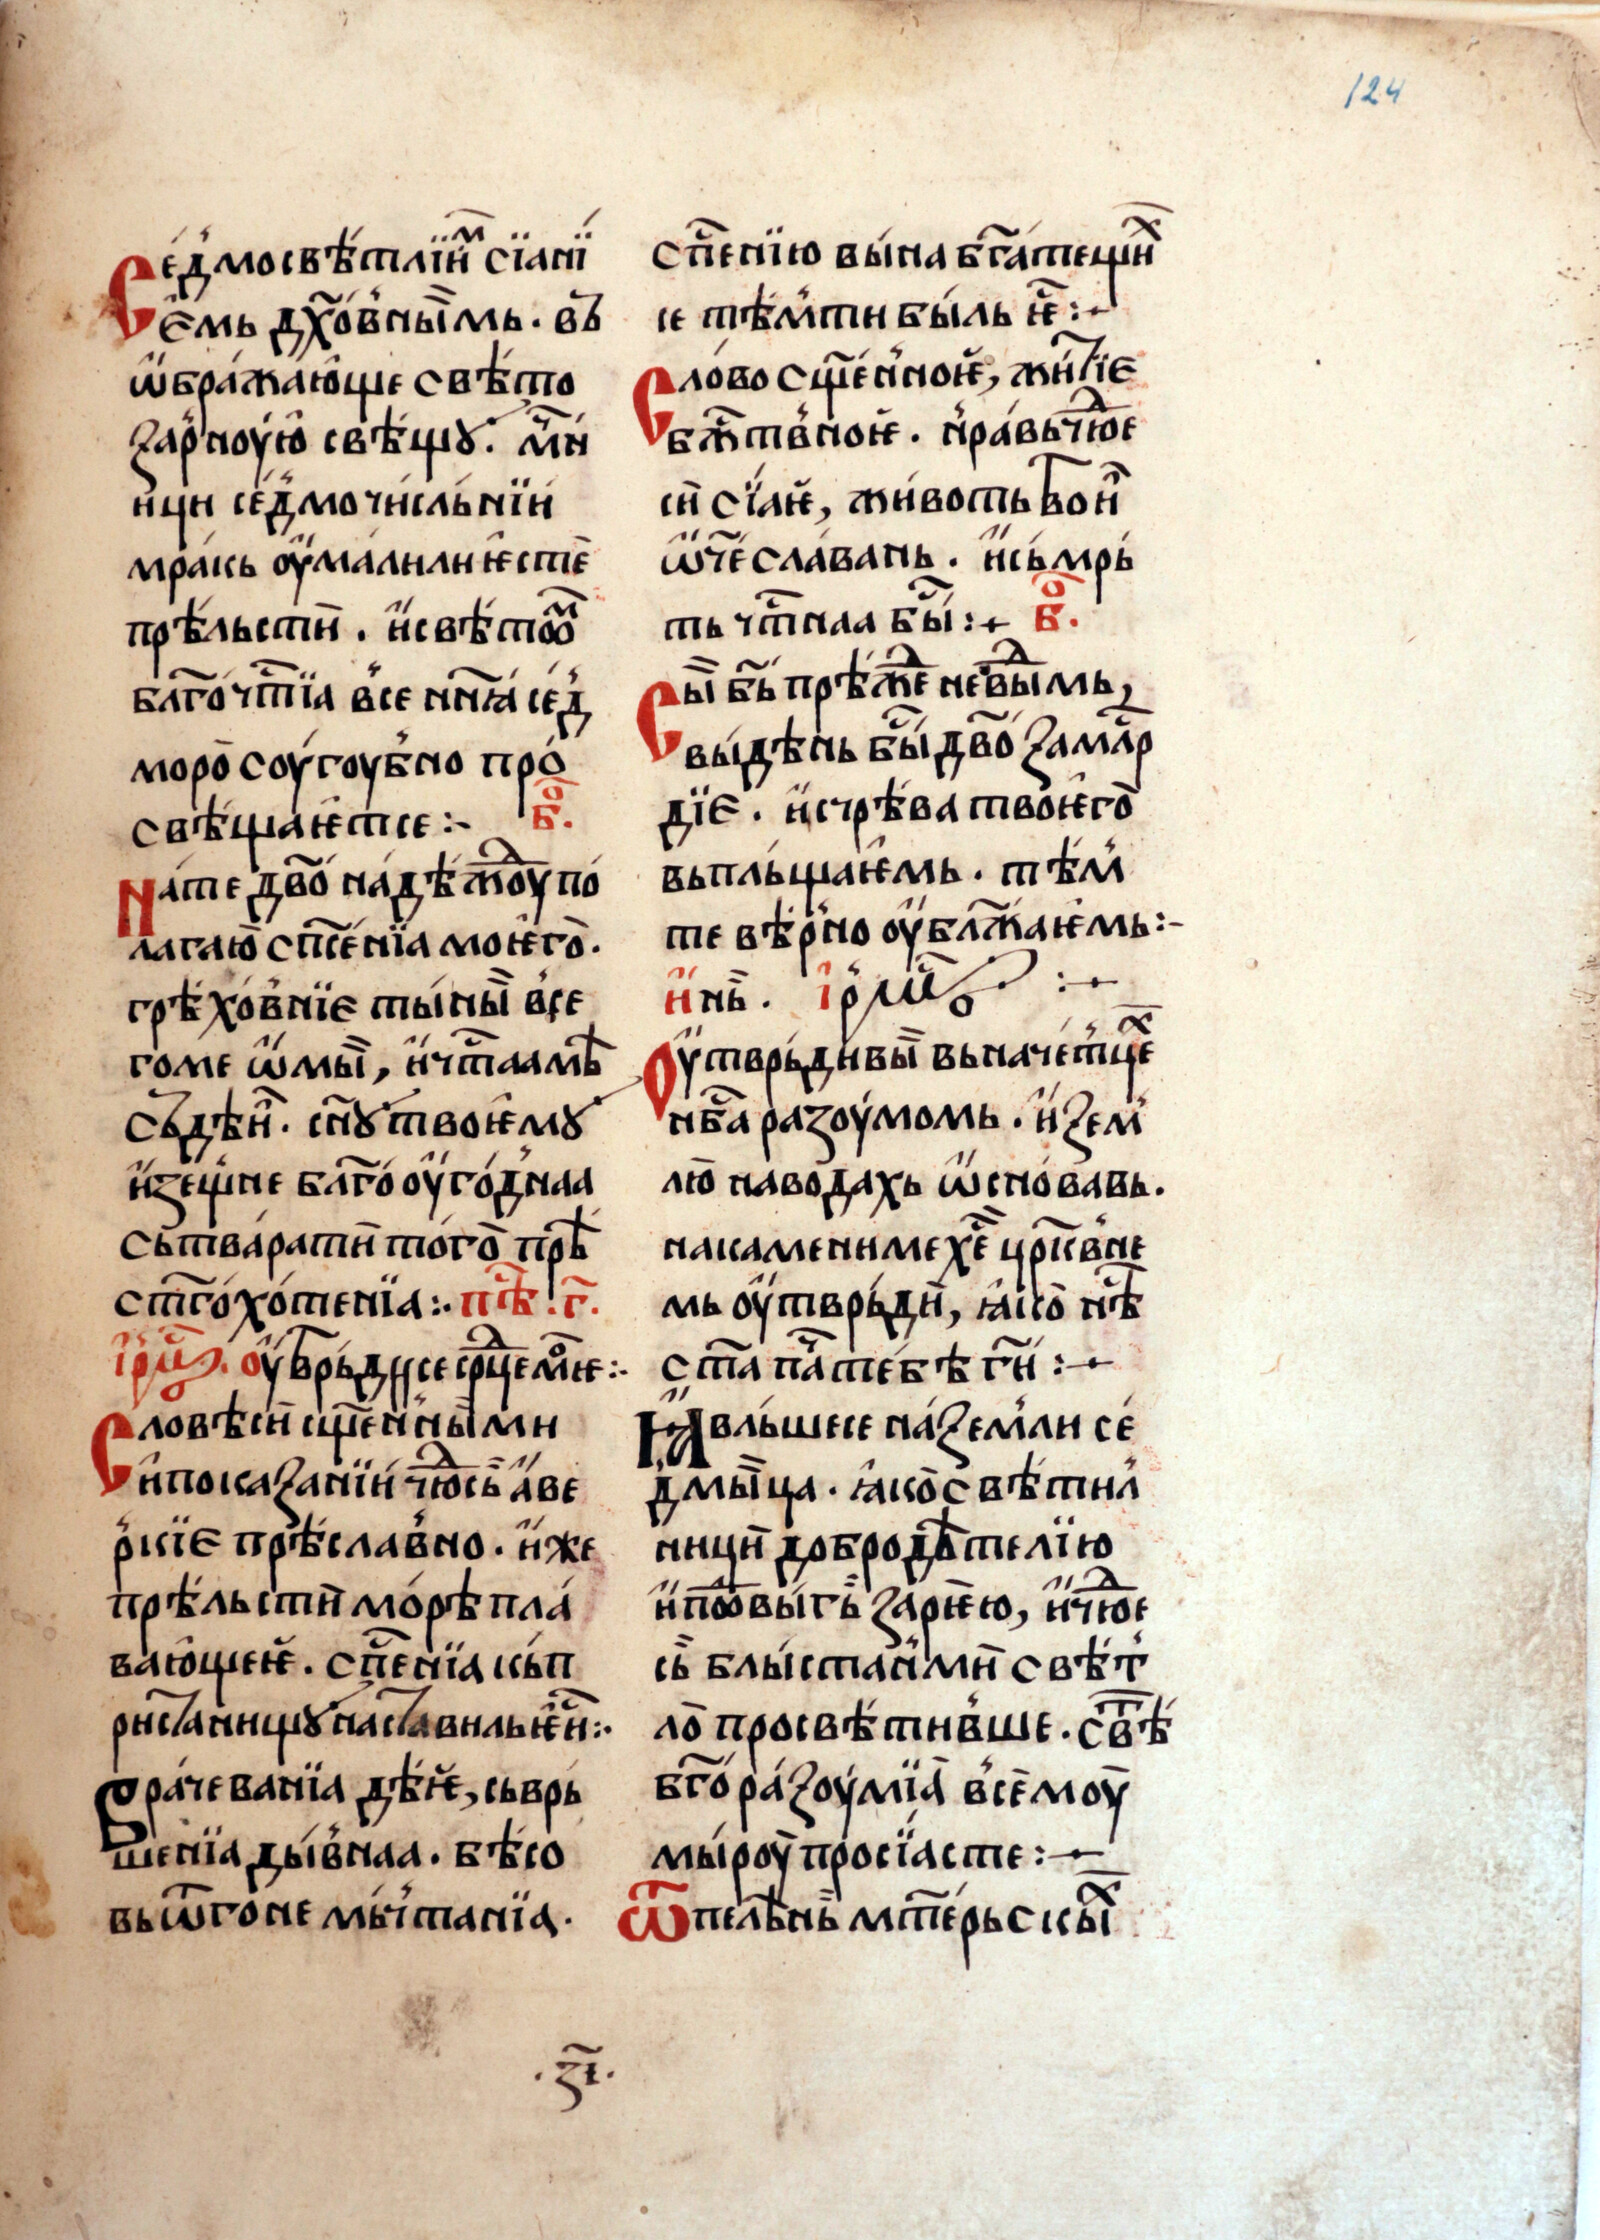 124
Се́дмосвѣ́тлїи́мь сїа́нї
ѥ҆мь дх҃о́вны̏мь. въ
ѡ҆бража́ю҆ще свѣ́то
за́рноую҆ свѣ́щꙋ. мч҃н
ици се́дмочи́сльнїи
мра́кь ѹ҆ма́лили ѥсте҄
прѣ́льсти҄. и҆ свѣ́томь
блг҃о́чт҃їа вс̾е нн҃ꙗ се́д
моро҄ соугоубно про́
свѣ́щаѥтсе :- бⷪ҇.
На́ те двⷪ҇ на́дѣждоу по́
лагаю҄ сп҃се́нїа моѥго҄.
грѣхо́внїе ти́ны̏ вс̾е
го ме ѡ҆мы̏, и҆ чт҃аа мѣ
съдѣи҄. сн҃ꙋ твоѥмꙋ
и҆зещне блг҃о́ ѹ҆го́днаа
сьтва́рати҄ того҄ прѣ
ст҃го́ хо́тенїа :. пѣⷭ҇ :г҃.
і҆рмⷭ҇. ѹ҆тврьди се срⷣце моѥ :.
Словѣси҄ сщ҃е́нны̏ми
и҆ показа́нїи чюⷣсь҄ а҆ве
рⷦ҇кїе прѣ́славно. и҆же
прѣ́льсти҄ мо́рѣ пла́
ваю҆щеѥ. сп҃се́нїа кь п
риста́нищꙋ наста́виль ѥси҄ :.
Врачева́нїа дѣ́ѥ, сьврь
ше́нїа ди́внаа. бѣ́со
вь ѿго́не мьчта́нїа.
сп҃се́нїю ви́на бг҃а́тещих
се тѣ́мжти би́ль ѥⷭ҇ :-
Сло́во сщ҃е́нноѥ, жи́тїе
бжⷭ҇твноѥ. нра́вь чюⷣе
си҄ сїаѥ, живо́ть твои҄
ѿч҃е сла́вань. и҆ сьмрь
ть чт҃наа бы́ⷭ҇ :- бⷪ҇.
Сы̏ бь҃ прѣ́жⷣе не ви́дⷣимь,
ви́дѣнь бы́ⷭ҇ двⷪ҇ за млⷭ҇р
дїе. и҆с чрѣ́ва твоѥго҄
вьпльщаѥмь. тѣм
те вѣ́рно ѹ҆блжа́ѥмь :-
и҆нь. і҆рмⷭ҇ :-
Оутврьди́вы̏ вь наче́тцѣх
нб҃са ра́зоумомь. и҆ зем
лю҄ на вода́хь ѡ҆сно́вавь.
на ка́мени ме хе҃ цр҃ковне
мь ѹ҆тврьди҄, ꙗ҆ко҄ нѣⷭ҇
ст҃а па́ⷱ те́бѣ гⷭ҇и :-
Ꙗ҆вль́шесе на́ земли се́
дмы̏ца. ꙗ҆ко҄ свѣ́тил
ници҄ до́бродѣ́телїю
и҆ подви́гь҄ заріею, и҆ чюⷣе
сь҄ бли́стаⷩ҇ми҄ свѣ́т
ло҄ просвѣ́тивше. свѣ
бг҃о́ра́зоумїа вс̾ему
ми́роу просїасте :-
Ѿ пелѣ́нь мт҃е́рьскых
.зі҃.